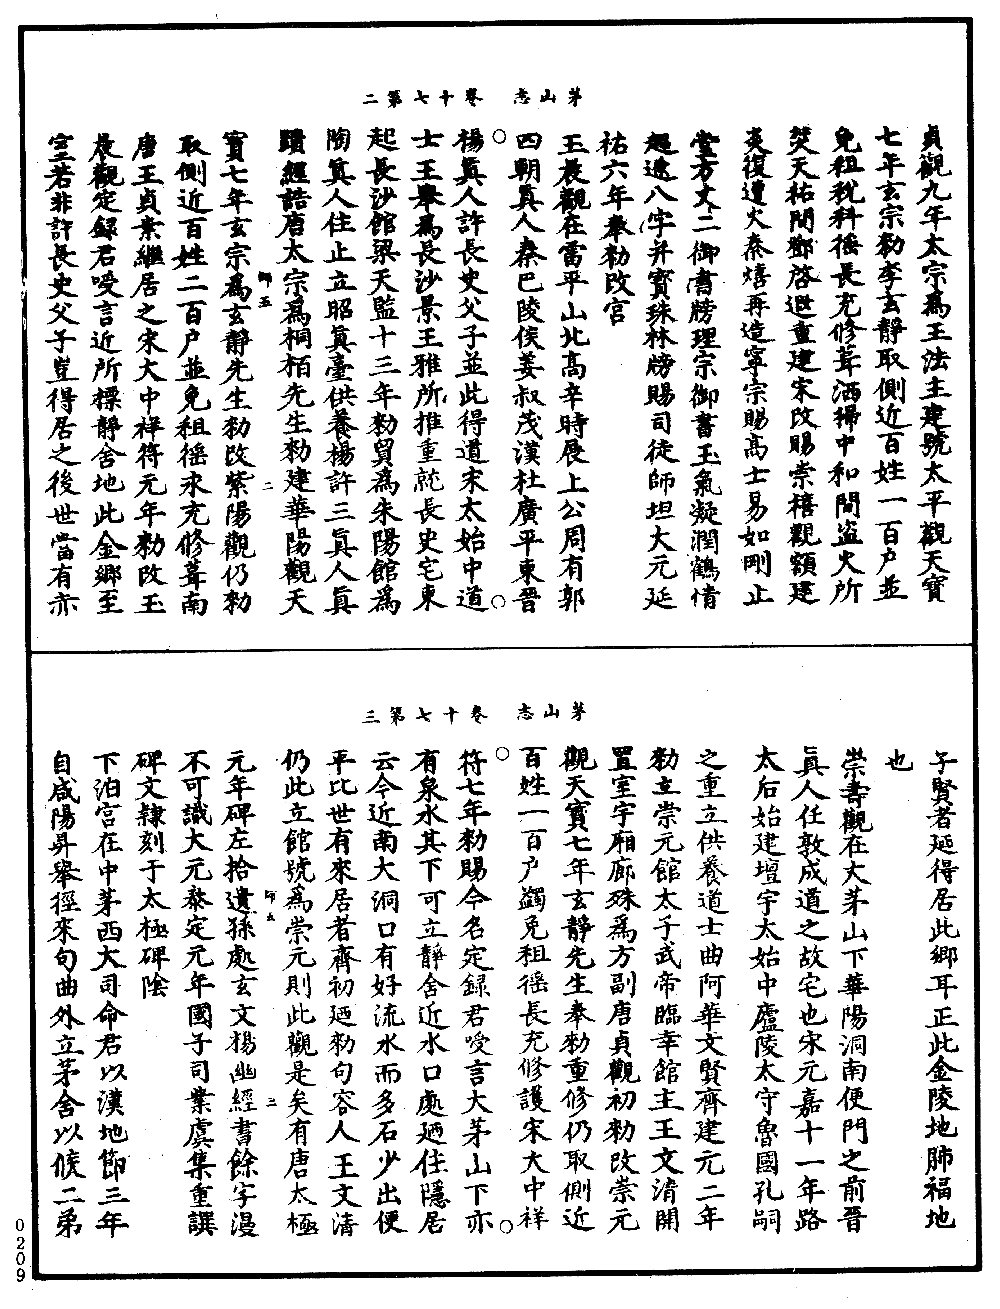 茅山志　卷十七第二
貞觀九年太宗為王法主建號太平觀天寶
七年玄宗勅李玄靜取側近百姓一百戶並
免租稅科徭長充修葺洒掃中和間盜火所
焚天祐間鄧啓遐重建宋改賜崇禧觀額建
炎復遭火秦熺再造寧宗賜高士易如剛止
堂方丈二御書牓理宗御書玉氣凝潤鶴情
超遼八字并寶珠林牓賜司徒師坦大元延
祐六年奉勅改宮
玉晨觀在雷平山北高辛時展上公周有郭
四朝真人秦巴陵侯姜叔茂漢杜廣平東晉
楊真人許長史父子並此得道宋太始中道
士王舉為長沙景王雅所推重就長史宅東
起長沙館梁天監十三年勅貿為朱陽館為
陶真人住止立昭真臺供養楊許三真人真
蹟經誥唐太宗為桐栢先生勅建華陽觀天
師五　二
寶七年玄宗為玄靜先生勅改紫陽觀仍勅
取側近百姓二百戶並免租徭永充修葺南
唐王貞素繼居之宋大中祥符元年勅改玉
晨觀定錄君受言近所標靜舍地此金鄉至
室若非許長史父子豈得居之後世當有亦
茅山志　卷十七第三
子賢者廼得居此鄉耳正此金陵地肺福地
也
崇壽觀在大茅山下華陽洞南便門之前晉
真人任敦成道之故宅也宋元嘉十一年路
太后始建壇宇太始中廬陵太守魯國孔嗣
之重立供養道士曲阿華文賢齊建元二年
勅立崇元館太子武帝臨幸館主王文清開
置堂宇廂廊殊為方副唐貞觀初勅改崇元
觀天寶七年玄靜先生奉勅重修仍取側近
百姓一百戶蠲免租徭長充修護宋大中祥
符七年勅賜今名定錄君受言大茅山下亦
有泉水其下可立靜舍近水口處廼住隱居
云今近南大洞口有好流水而多石少出便
平比世有來居者齊初廼勅句容人王文清
仍此立館號為崇元則此觀是矣有唐太極
師五　三
元年碑左拾遺孫處玄文楊幽經書餘字漫
不可識大元泰定元年國子司業虞集重譔
碑文隸刻于太極碑陰
下泊宮在中茅西大司命君以漢地節三年
自咸陽昇舉徑來句曲外立茅舍以候二弟
0209